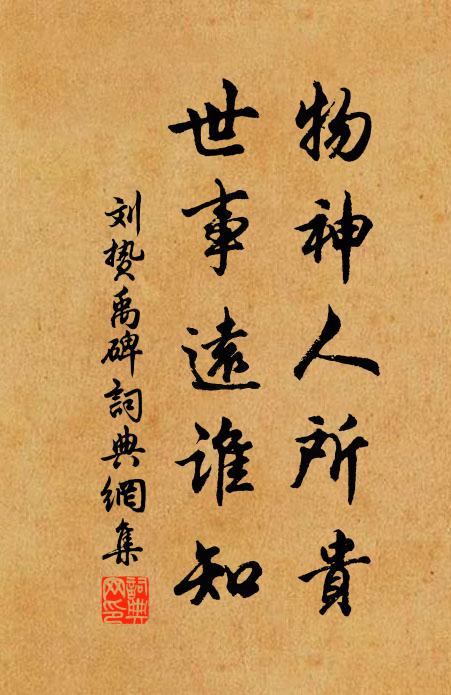 物神人所貴
世事遠誰知
刘挚禹碑詞典網集
詞典网印